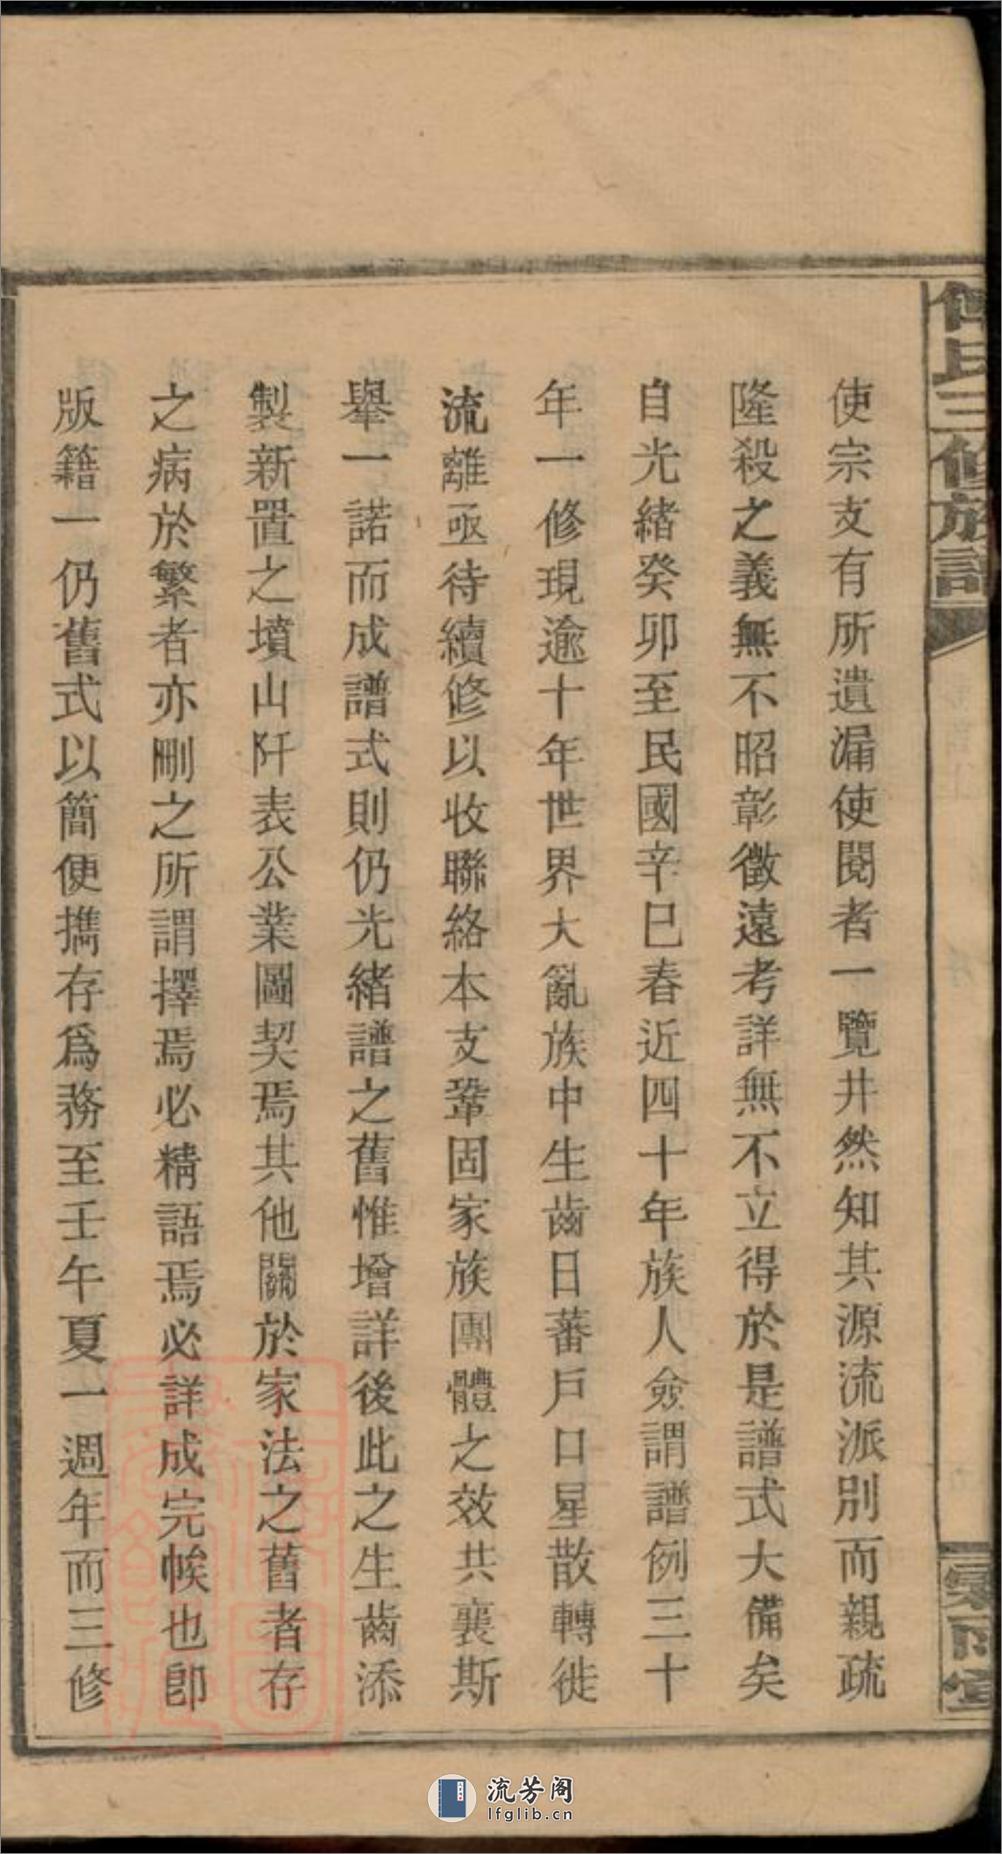 使宗支有所遺漏使閱者一覽井然知其源流派別而親疏
隆殺之義無不昭彰徵遠考詳無不立得於是譜式大備矣
自光緒癸卯至民國辛巳春近四十年族人僉謂譜例三十
年一修現逾十年世界大亂族中生齒日蕃戶口星散轉徙
流離亟待續修以收聯絡本支鞏固家族團體之效共襄斯
舉一諾而成譜式則仍光緒譜之舊惟增詳後此之生齒添
製新置之墳山阡表公業圖契焉其他關於家法之舊者存
之病於繁者亦刪之所謂擇焉必精語焉必詳成完帙也卽
版籍一仍舊式以簡便擕存爲務至壬午夏一週年而三修
氏三修族譜
霖雨堂
流芳阁
lfglib.cn